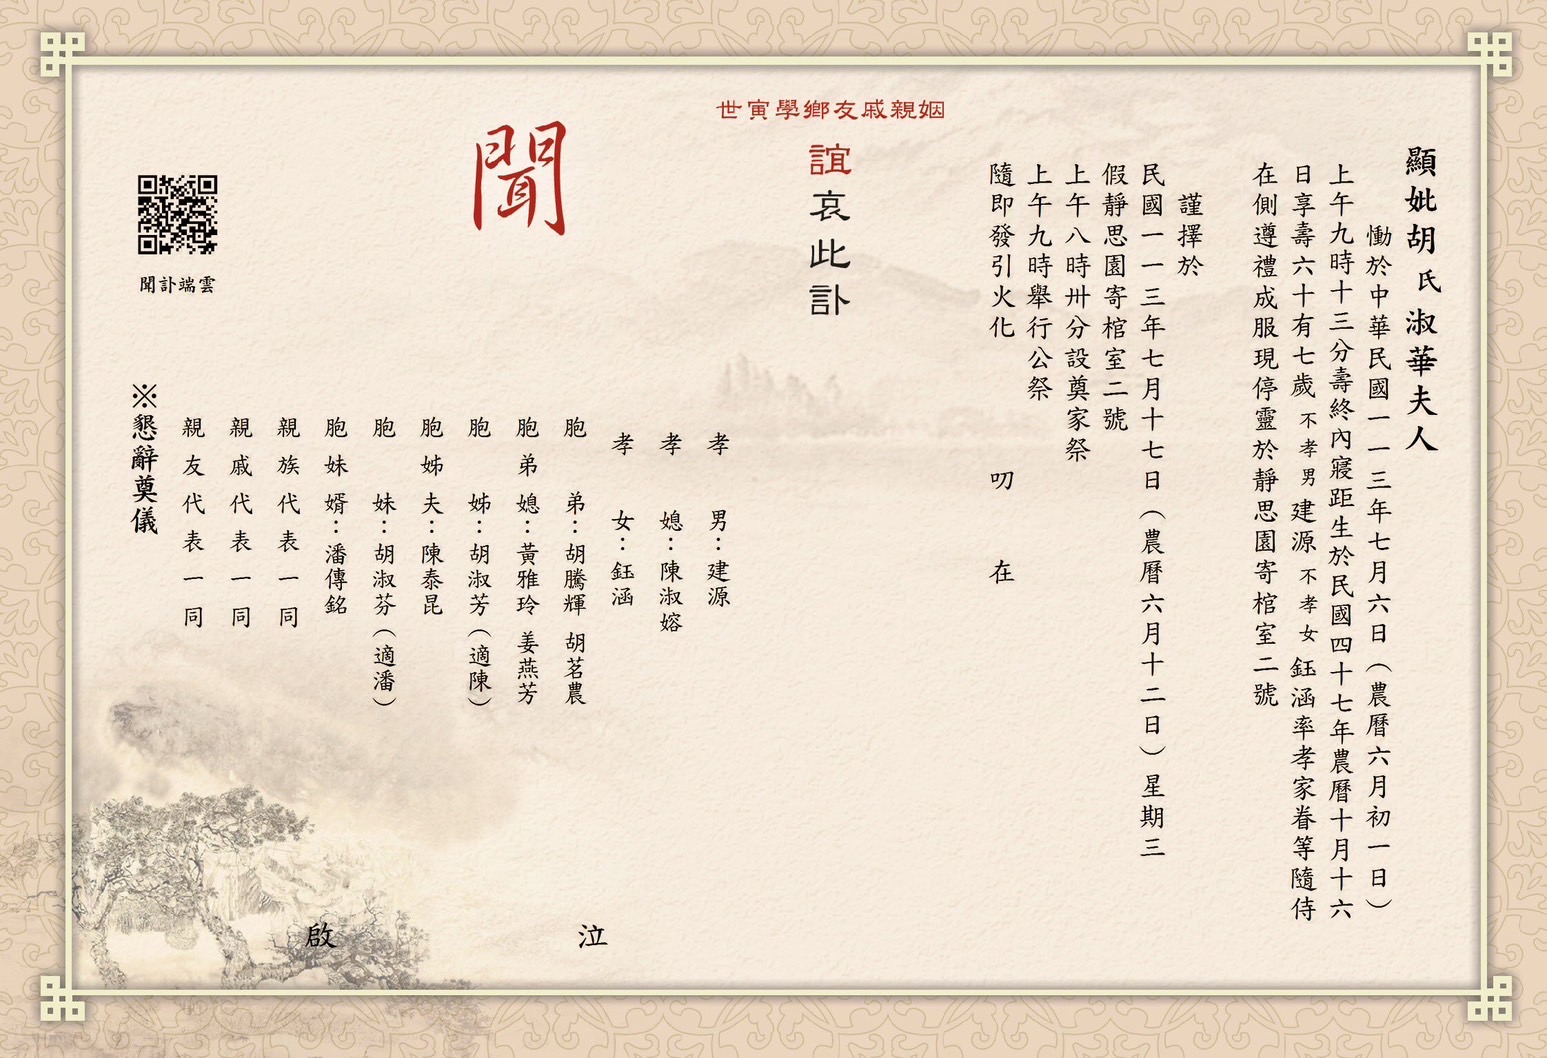 顯妣胡氏淑華夫人
慟於中華民國一一三年七月六日（農曆六月初一日）
上午九時十三分壽終內寢距生於民國四十七年農曆十月十六
日享壽六十有七歲不孝男建源不孝女鈺涵率孝家眷等隨侍
在側遵禮成服現停靈於靜思園寄棺室二號
謹擇於
民國一一三年七月十七日（農曆六月十二日）星期三
假靜思園寄棺室二號
上午八時卅分設奠家祭
上午九時舉行公祭
隨即發引火化 叨 在
姻親戚友鄉學寅世
誼哀此訃
聞
孝男：建源
孝媳：陳淑嫆
孝女：鈺涵
胞弟：胡騰輝 胡茗農
胞弟媳：黃雅玲 姜燕芳
胞姊：胡淑芳（適陳）
胞姊夫：陳泰昆
胞妹：胡淑芬（適潘）
胞妹婿：潘傳銘
親族代表一同
親戚代表一同
親友代表一同
泣
啟
※懇辭奠儀
雲端訃聞